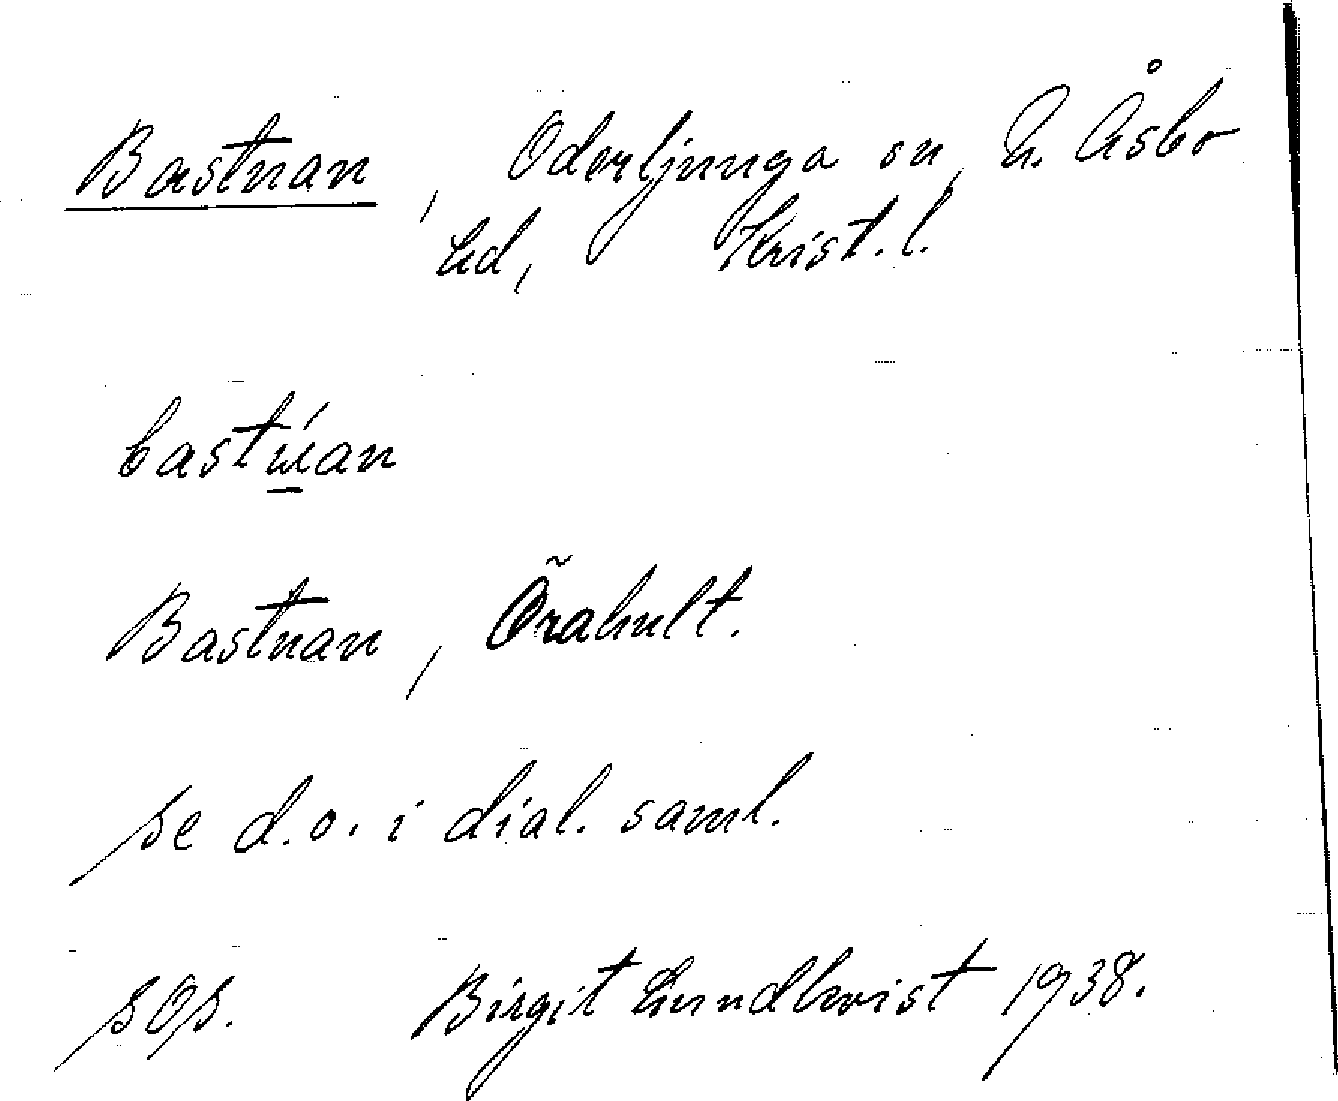 Bastnan, Oderljunga sn, N. Åsbo
hd, Krist. l.
bastnan
Bastnan, Örahult.
se d.o. i dial. saml.
sOs. Birgit Lundkvist 1938.